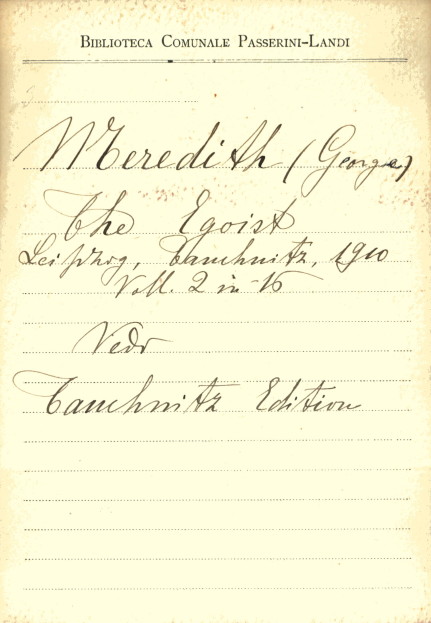 BIBLIOTECA COMUNALE PASSERINI-LANDI
Meredith (George)
The Egoist
Leipzig, Tauchnitz, 1910
Voll. 2 in-16
Vedi
Tauchnitz Edition